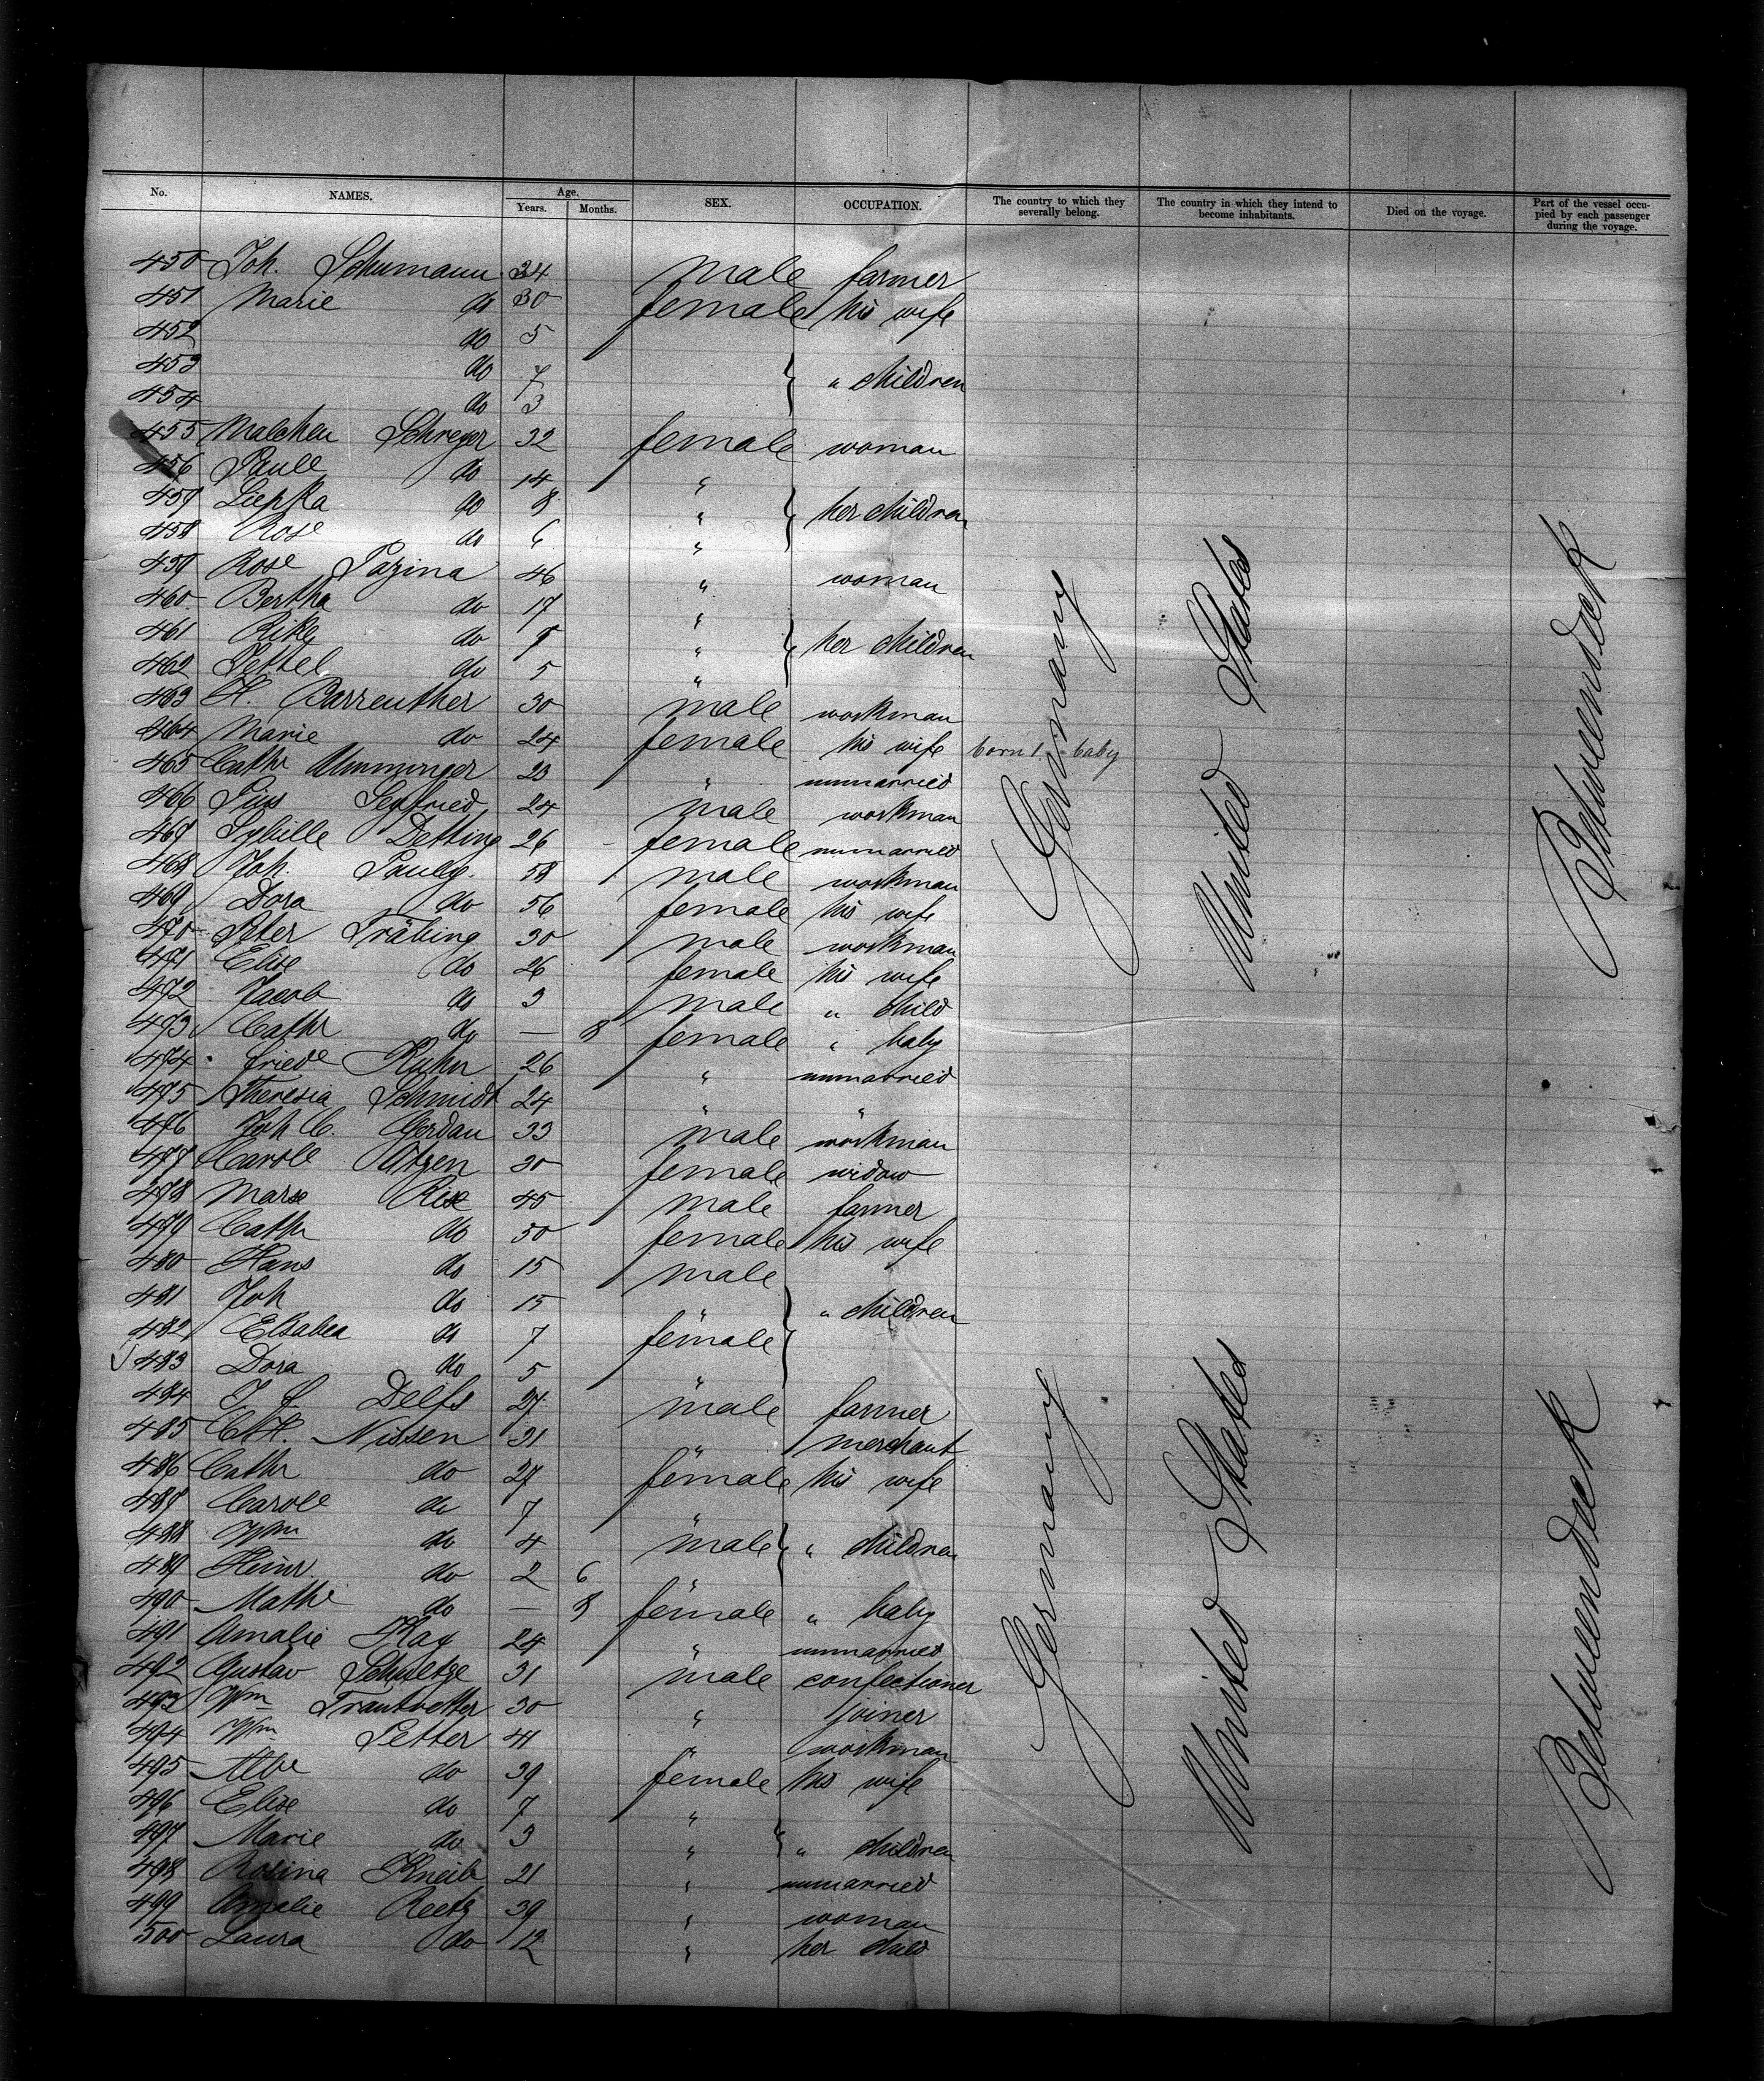 No. NAMES. Age. Years. Months. SEX. OCCUPATION. The country to which they severally belong. The country in which they intend to become inhabitants. Died on the voyage. Part of the vessel occupied by each passenger during the voyage.
450 Joh. Schumann 34 male farmer
451 Marie do 30 female his wife
452 do 5
453 do 7 " children
454 do 3
455 Malchen Schreyer 32 female woman
456 Paule do 14 "
457 Liepka do 8 " her children
458 Rose do 6 "
459 Rose Pazina 46 " woman
460 Bertha do 17 "
461 Rike do 9 " her children
462 Pettel do 5 "
463 H. Barreuther 30 male workman
464 Marie do 24 female his wife born 1 baby
465 Cathr 23 " unmarried
466 Pius Seyfried 24 male workman
467 Sybille Detting 26 female unmarried
468 Joh. Pauly 58 male workman
469 Dora do 56 female his wife
470 Peter Träbing 30 male workman
471 Elise do 26 female his wife
472 Jacob do 3 male " child
473 Cathr do — 8 female " baby
474 Friede Kuhn 26 " unmarried
475 Theresia Schmidt 24 " "
476 Joh C. Gerdau 33 male workman
477 Carole Atzen 30 female widow
478 Marx Rix 45 male farmer
479 Cath do 50 female his wife
480 Hans do 15 male
481 Joh do 15 " " children
482 Elsabea do 7 female
483 Dora do 5 "
484 J. J. Delfs 27 male farmer
485 C.H. Nissen 31 " merchant
486 Cathr do 27 female his wife
487 Carole do 7 "
488 Wm do 4 male " children
489 Heinr. do 2 6 "
490 Mathe do — 8 female " baby
491 Amalie Kay 24 " unmarried
492 Gustav Schultze 31 male confectioner
493 Wm Trautvetter 30 " joiner
494 Wm Petter 41 " workman
495 Albe do 39 female his wife
496 Elise do 7 "
497 Marie do 3 " " children
498 Rosina Kneib 21 " unmarried
499 Amalie Reetz 39 " woman
500 Laura do 12 " her child
Germany
United States
Betweendeck
Germany
United States
Betweendeck